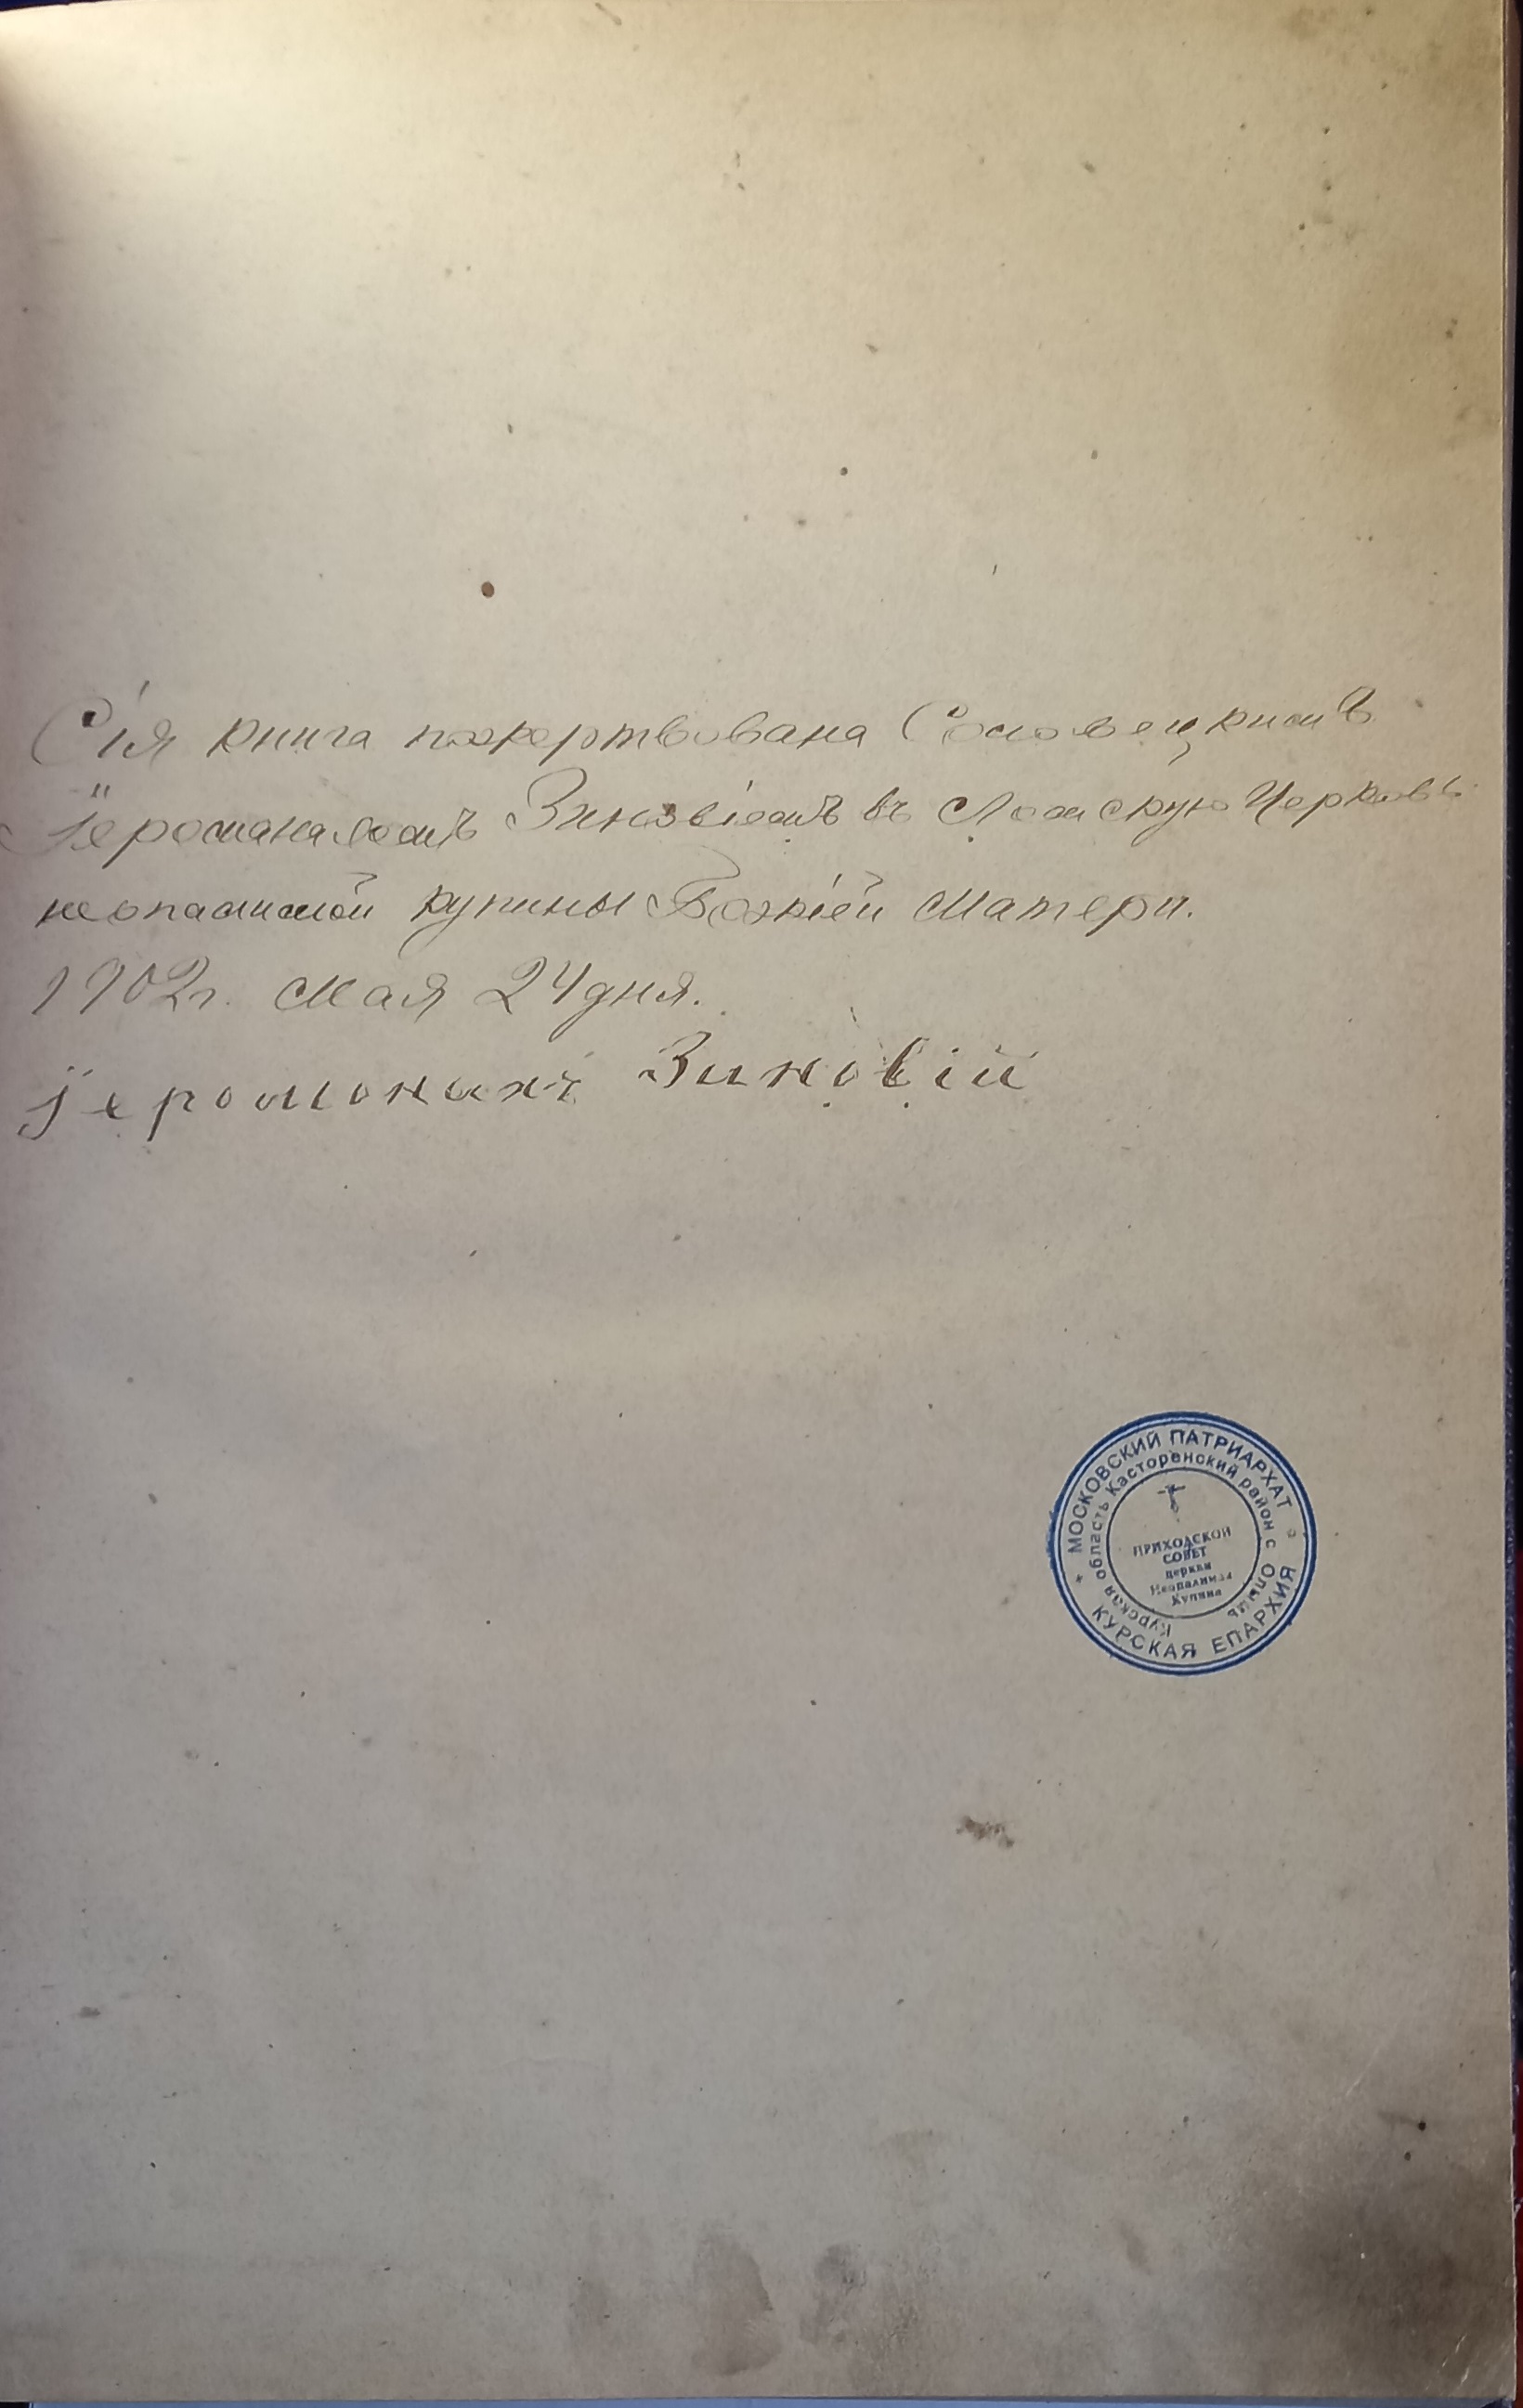 Сія книга пожертвована Соловецкимъ
Іеромонахомъ Зиновіемъ въ Ломскую Церковь
неопалимой купины Божіей Матери.
1902 г. Мая 24 дня.
Іеромонахъ Зиновій
МОСКОВСКИЙ ПАТРИАРХАТ
КУРСКАЯ ЕПАРХИЯ
Курская область Касторенский район с
ПРИХОДСКОЙ
СОВЕТ
церкви
Неопалимая
Купина